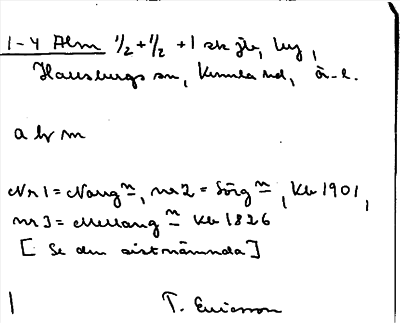 1-4 Alm 1/2+1/2 +1 sk jb, by,
Hausburgs sn, Kumla hd, Ö-l.
a br m
Nr 1 = Norrg n, nr 2 = Sörg n, Kb 1901,
nr 3 = Mellang n Kb 1826
[ Se den sistnämnda ]
T. Ericsson